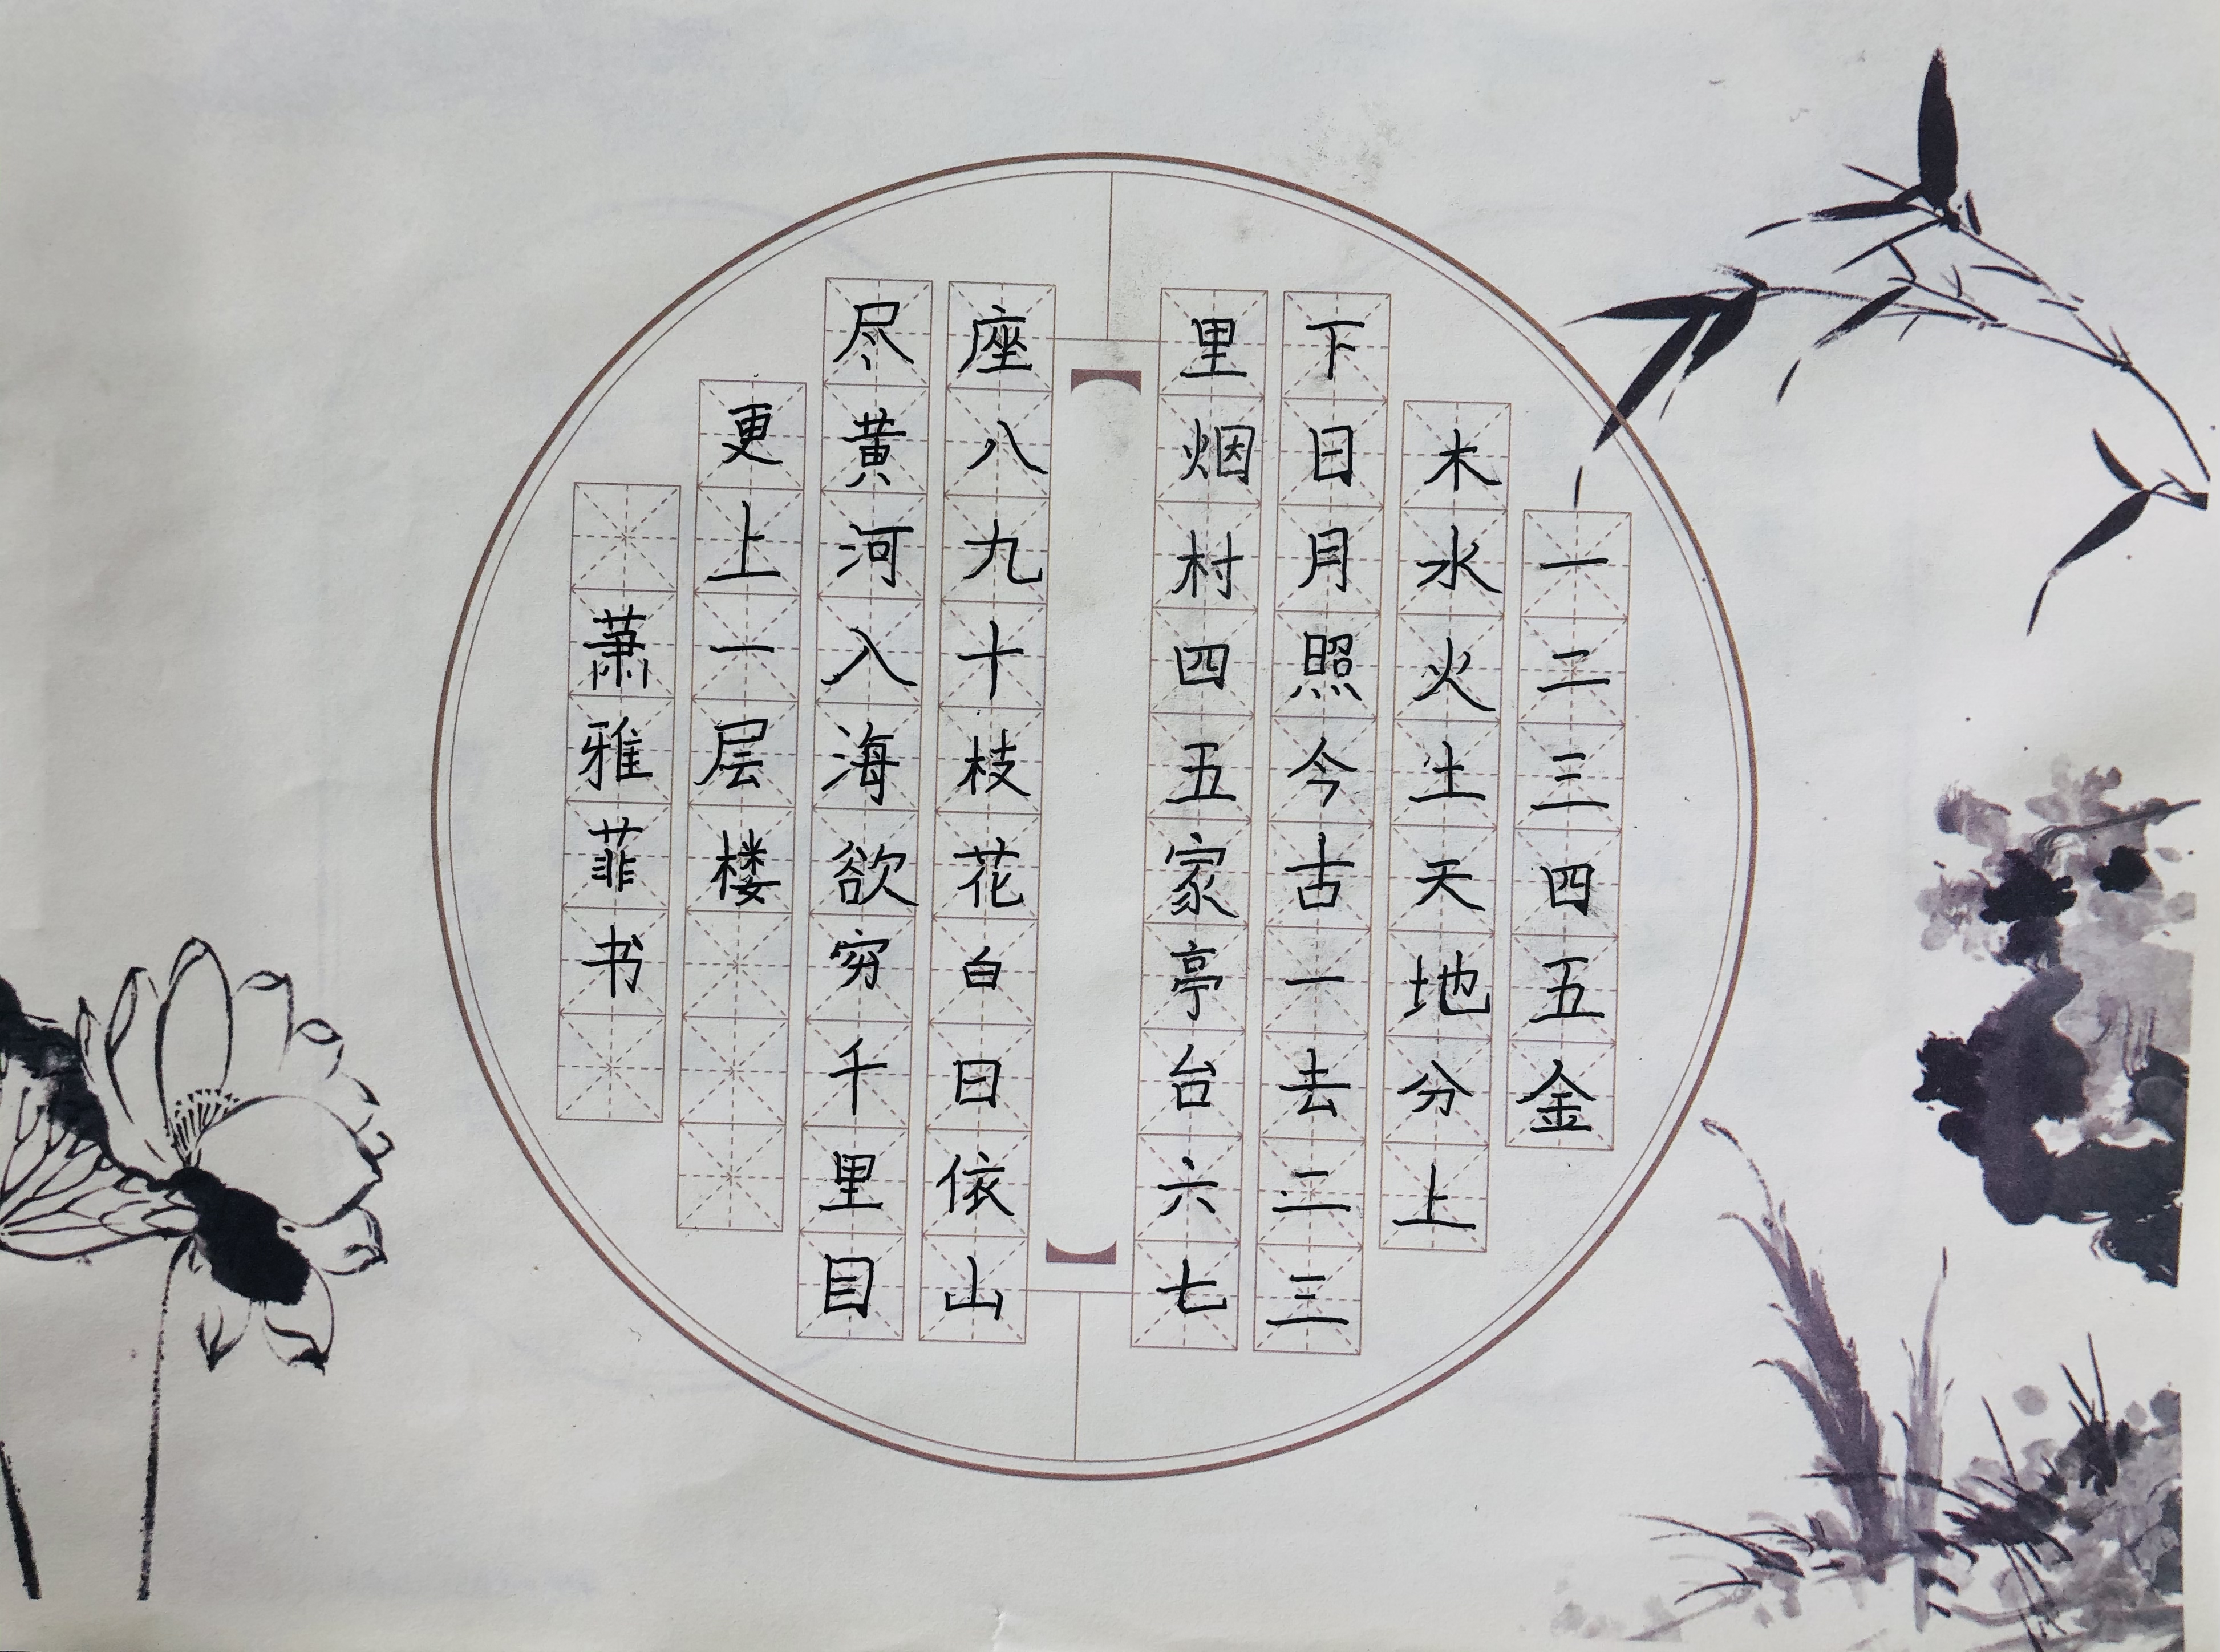 一二三四五金
木水火土天地分上
下日月照今古一去二三
里烟村四五家亭台六七
座八九十枝花白日依山
尽黄河入海欲穷千里目
更上一层楼
萧雅菲书